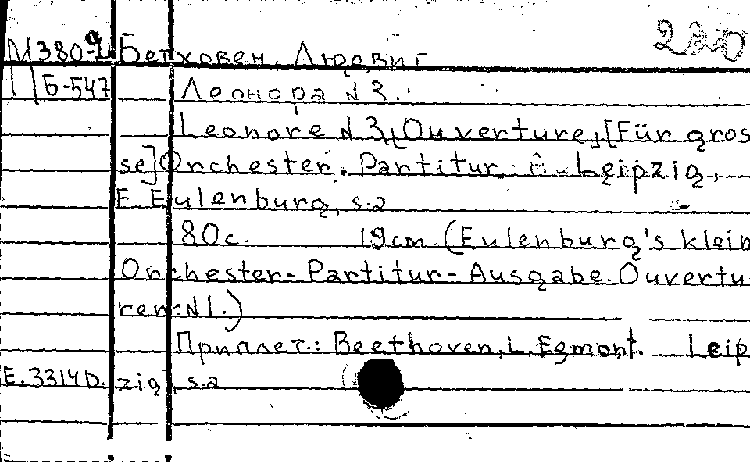 220
М380-2 Бетховен, Людвиг
Б-547 Леонора N 3.
Leonore N 3, Ouverture, [Für gros
se] Orchester. Partitur. Leipzig,
E. Eulenburg, s.a
80с. 19cm (Eulenburg's klein
Orchester-Partitur-Ausgabe. Ouvertu
ren: N 1.)
Приплет.: Beethoven, L. Egmont. Leip
E. 3314 D. zig, s.a